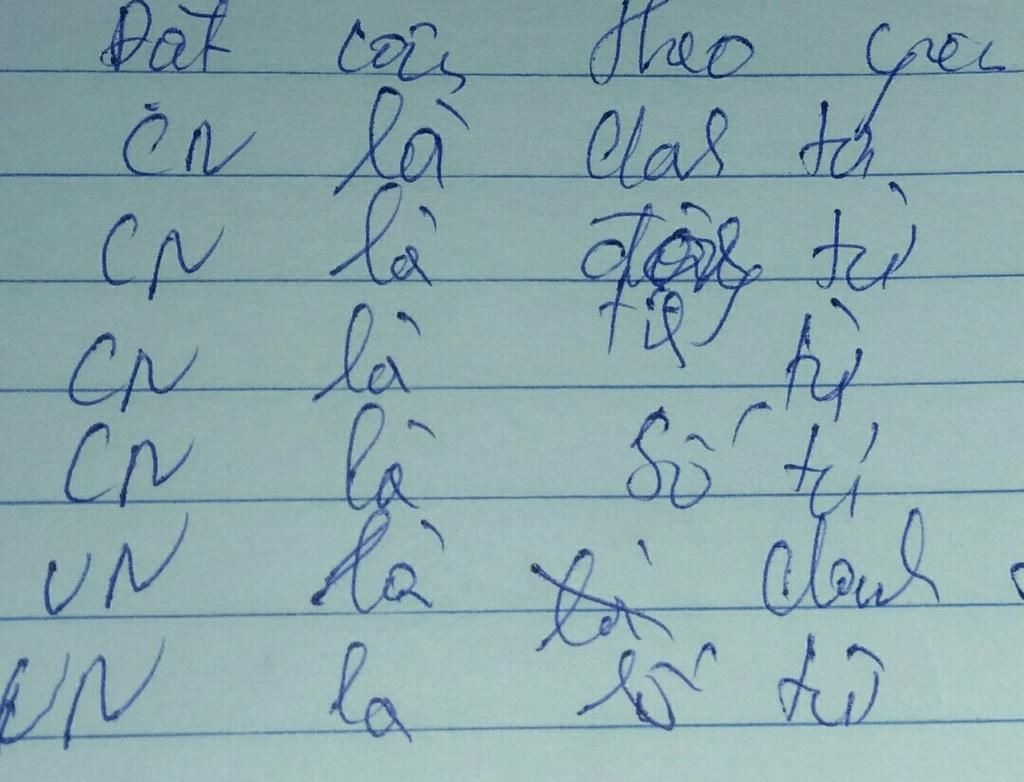 Đặt câu theo yêu
CN là danh từ
CN là động từ
CN là từ
CN là số từ
VN là danh
VN là số từ